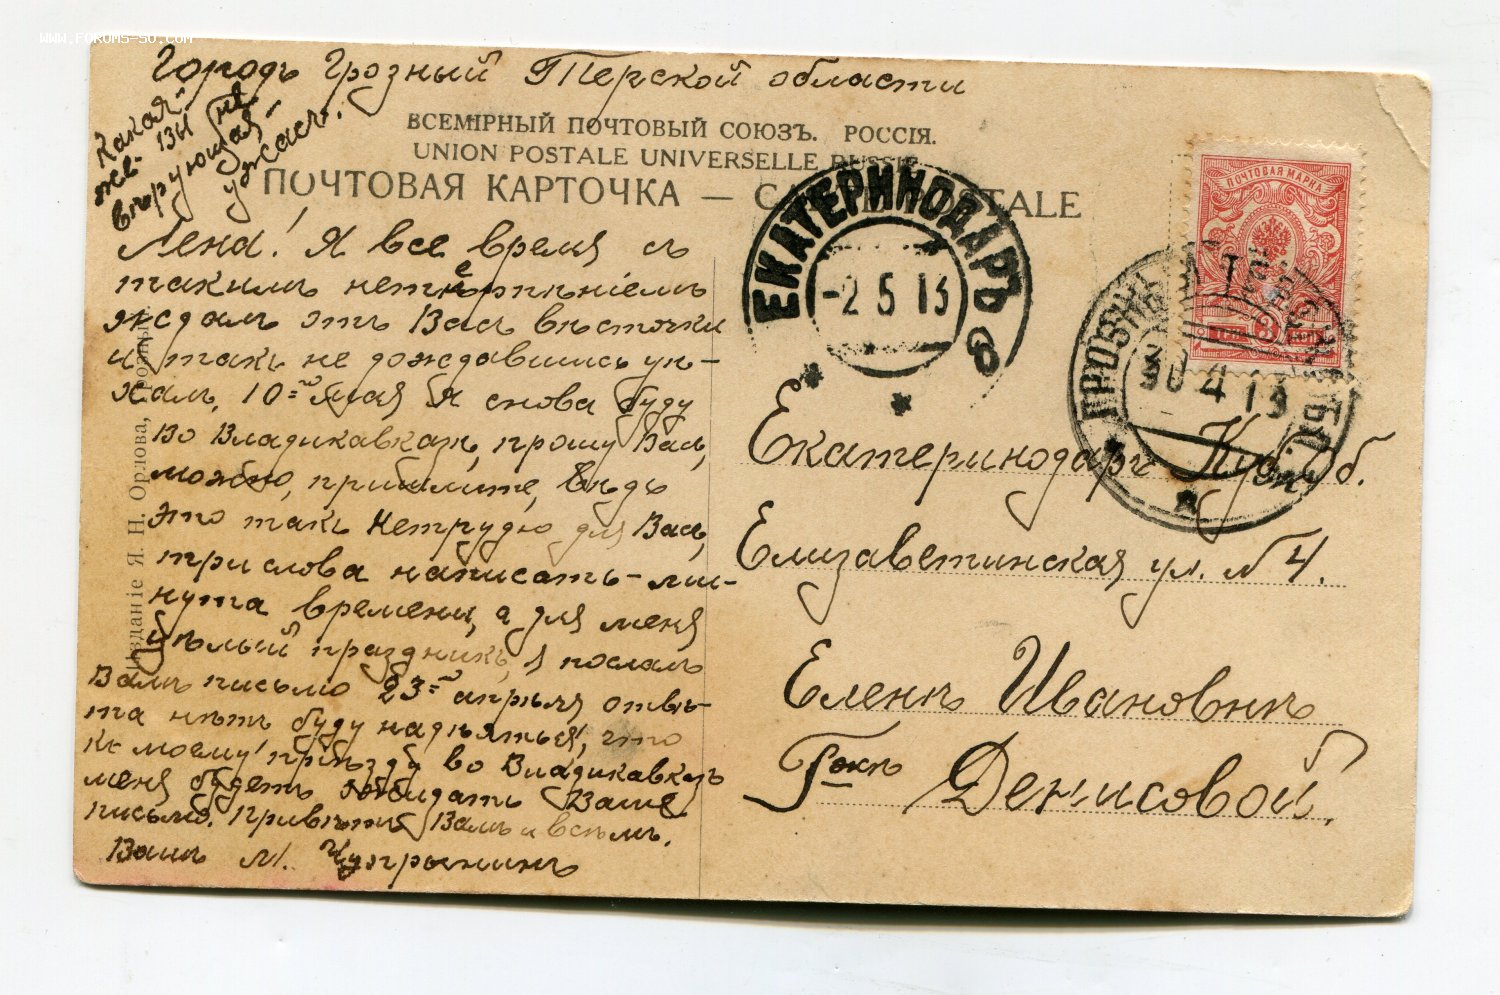 WWW.FORUMS-SU.COM
Городъ Грозный Терской области
Какая-
же- Вы не
вѣрующая-
ужасъ!
ВСЕМІРНЫЙ ПОЧТОВЫЙ СОЮЗЪ. РОССІЯ.
UNION POSTALE UNIVERSELLE RUSSIE
ПОЧТОВАЯ КАРТОЧКА — CARTE POSTALE
Лена! Я все время съ
такимъ нетерпѣніемъ
ждалъ отъ Васъ вѣсточки
и такъ не дождавшись уѣ-
халъ, 10=го Мая я снова буду
во Владикавказѣ, прошу Васъ,
можно, пришлите, вѣдь
это такъ нетрудно для Васъ,
три слова написать-ми-
нута времени, а для меня
цѣлый праздникъ, я послалъ
Вамъ письмо 23=го апрѣля отвѣ-
та нѣтъ буду надѣяться, что
къ моему пріѣзду во Владикавказъ
меня будетъ ожидать Ваше
письмо. Привѣтъ Вамъ и всѣмъ.
Вашъ М. Чупрынинъ
Изданіе Я. Н. Орлова, Грозный.
ЕКАТЕРИНОДАРЪ 6
-2 5 13
ПОЧТОВАЯ МАРКА
3
ГРОЗНЫЙ
30 4 13
Екатеринодаръ Куб. об.
Елизаветинская ул. № 4.
Еленѣ Ивановнѣ
Г-жѣ Денисовой.